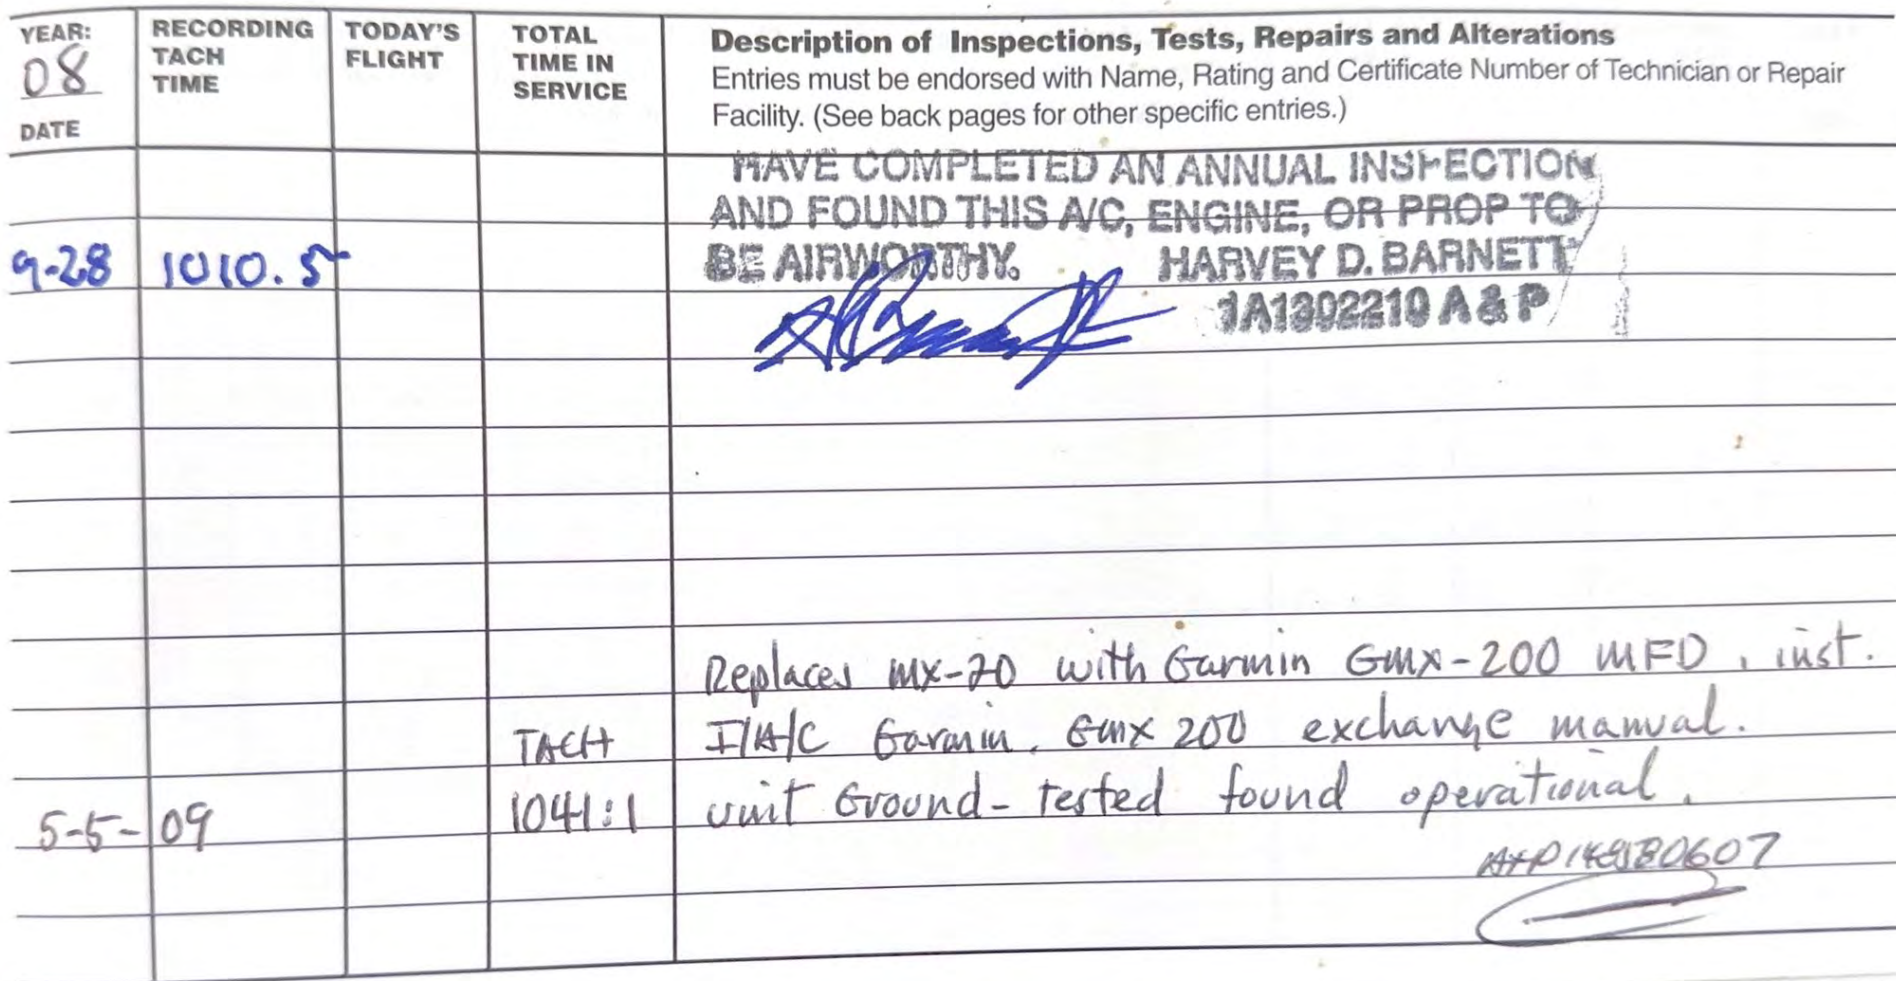 YEAR: 08 DATE
RECORDING TACH TIME
TODAY'S FLIGHT
TOTAL TIME IN SERVICE
Description of Inspections, Tests, Repairs and Alterations
Entries must be endorsed with Name, Rating and Certificate Number of Technician or Repair
Facility. (See back pages for other specific entries.)
HAVE COMPLETED AN ANNUAL INSPECTION
AND FOUND THIS A/C, ENGINE, OR PROP TO
9-28 1010.5 BE AIRWORTHY. HARVEY D. BARNETT
1A1302210 A & P
Replaces MX-20 with Garmin GMX-200 MFD, inst.
TACH I/A/C Garmin. GMX 200 exchange manual.
5-5-09 1041:1 unit Ground-tested found operational.